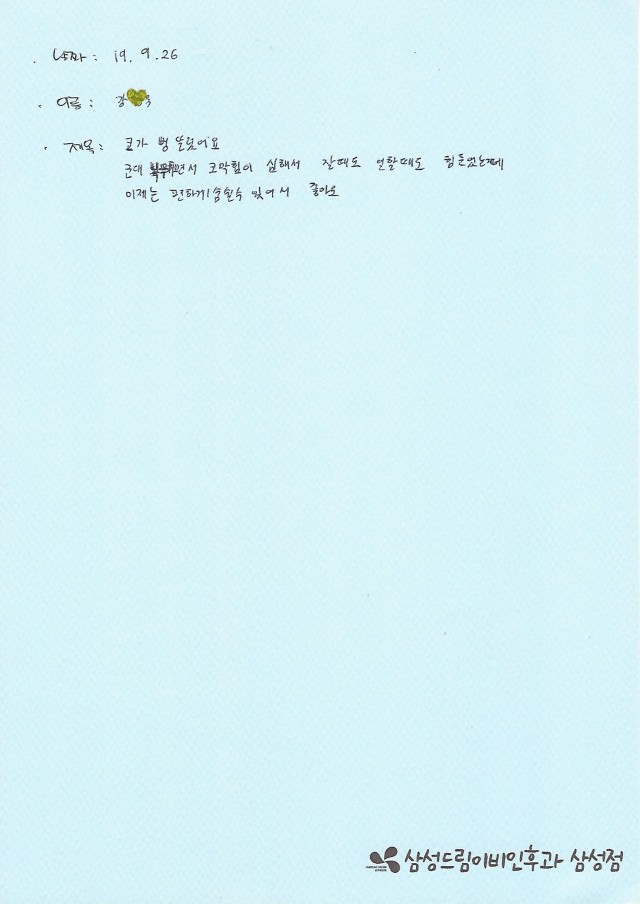 · 날짜 : 19. 9. 26
· 이름 : 강 욱
· 제목 : 코가 뻥 뚫렸어요
군대 면서 코막힘이 심해서 잘때도 일할때도 힘들었는데
이제는 편하게 숨쉴수 있어서 좋아요
삼성드림이비인후과 삼성점